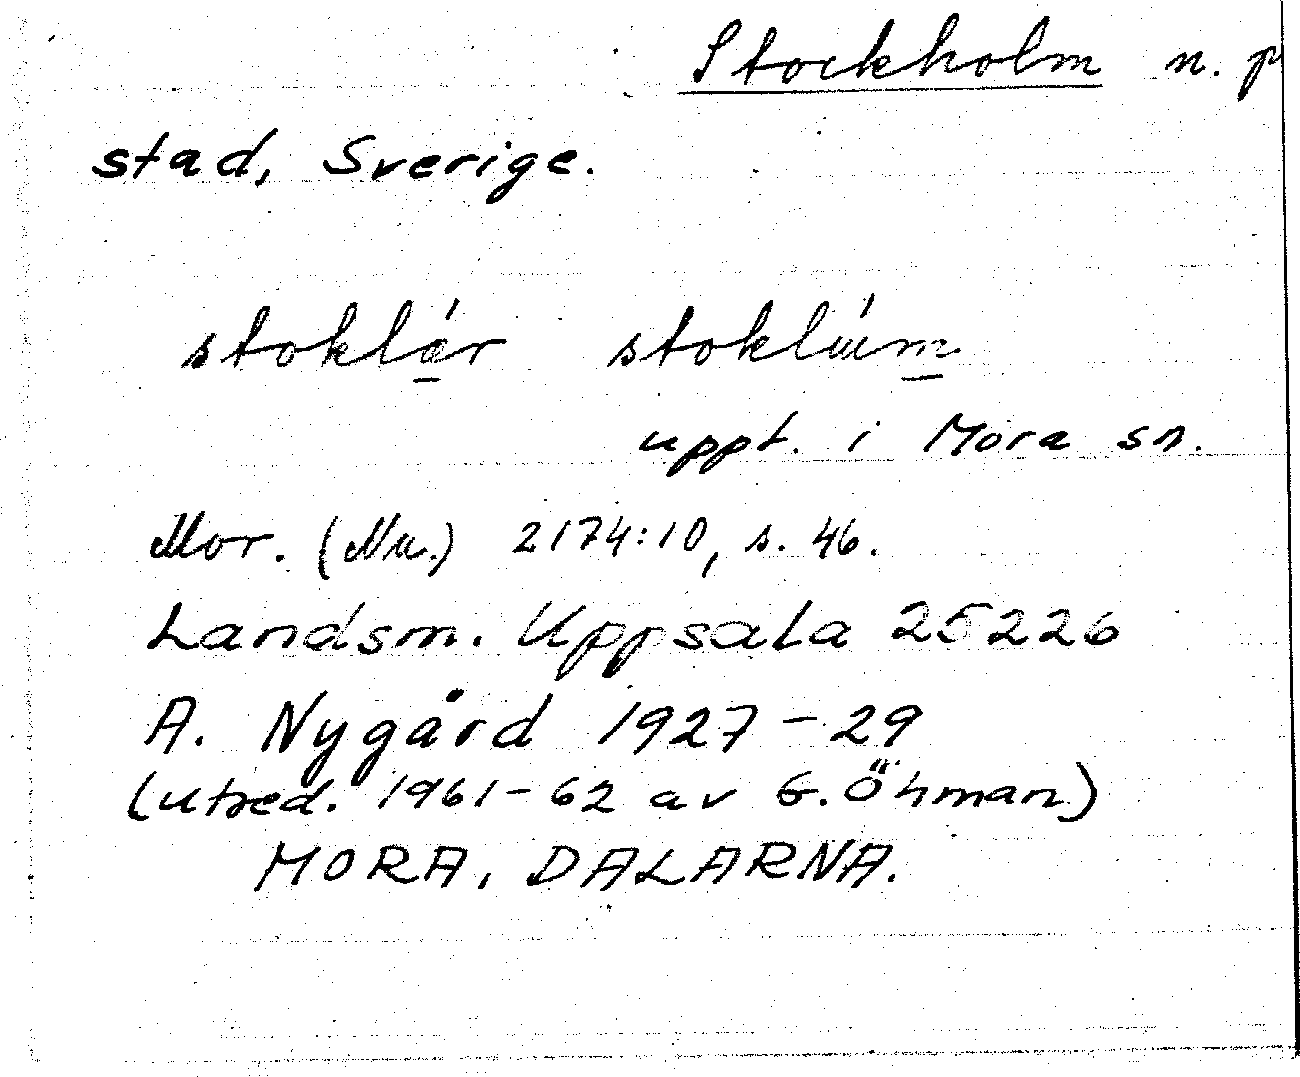 Stockholm n. p
stad, Sverige.
uppt. i Mora sn.
Mor. (Nu.) 2174:10, s. 46.
Landsm. Uppsala 25226
A. Nygård 1927-29
(utred. 1961-62 av G. Öhman)
MORA, DALARNA.